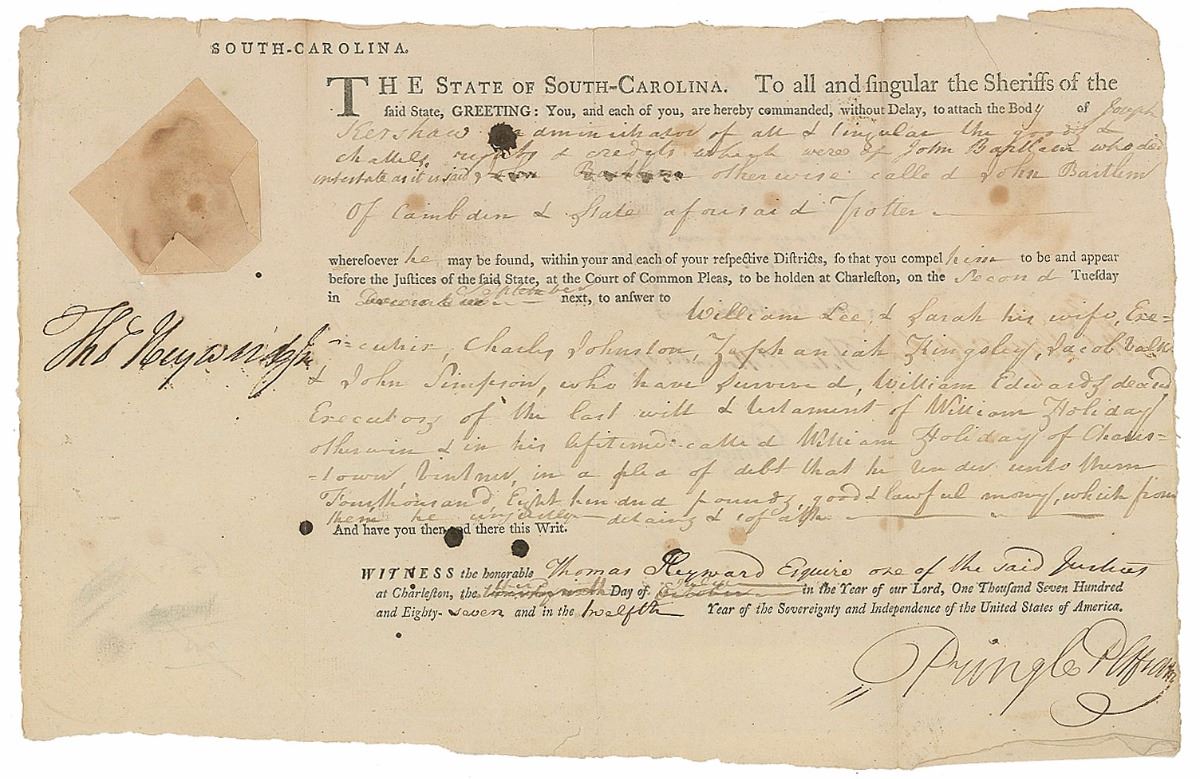 SOUTH-CAROLINA.
THE STATE OF SOUTH-CAROLINA. To all and singular the Sheriffs of the
said State, GREETING: You, and each of you, are hereby commanded, without Delay, to attach the Body of Joseph
Kershaw administrator of all & singular the goods &
chattels, rights & credits which were of John Bartlam who died
intestate as it is said, otherwise called John Bartlem
Of Cambden & State aforesaid Potter
wheresoever he may be found, within your and each of your respective Districts, so that you compel him to be and appear
before the Justices of the said State, at the Court of Common Pleas, to be holden at Charleston, on the Second Tuesday
in September next, to answer to
William Lee, & Sarah his wife, Exe-
-cutrix, Charles Johnston, Zephaniah Kingsley, Jacob Valk
& John Simpson, who have survived, William Edwards decd
Executors of the last will & testament of William Holiday
otherwise & in his lifetime called William Holiday of Charles-
-town, Vintner, in a plea of debt that he render unto them
Four thousand Eight hundred pounds, good & lawful money, which from
them he unjustly detains & so forth
And have you then and there this Writ.
Thos Heyward Jr
WITNESS the honorable Thomas Heyward Esquire one of the said Justices
at Charleston, the Day of in the Year of our Lord, One Thousand Seven Hundred
and Eighty-seven and in the twelfth Year of the Sovereignty and Independence of the United States of America.
Pringle